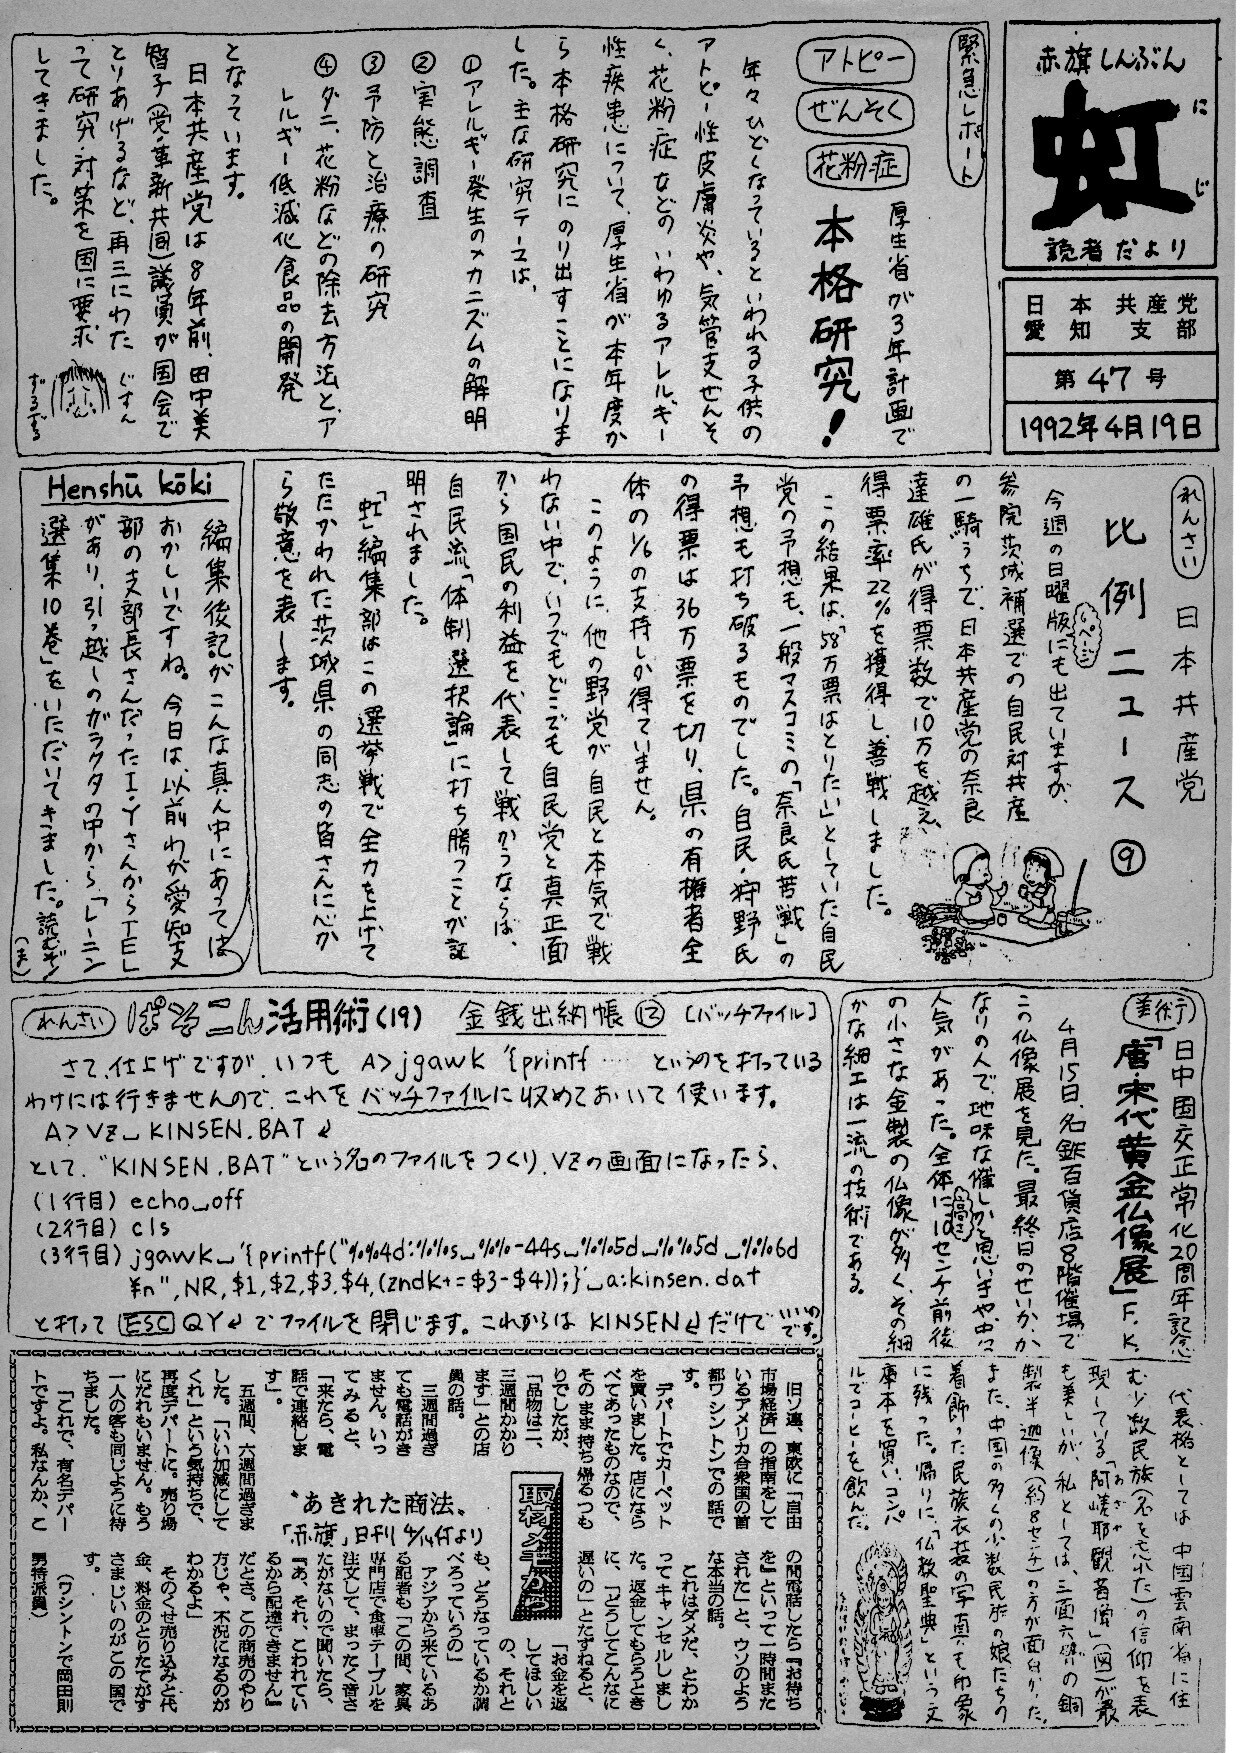 赤旗しんぶん
虹
にじ
読者だより
日本共産党
愛知支部
第47号
1992年4月19日
緊急レポート
アトピー
ぜんそく
花粉症
厚生省が3年計画で
本格研究!
年々ひどくなっているといわれる子供の
アトピー性皮膚炎や、気管支ぜんそ
く、花粉症などの いわゆるアレルギー
性疾患について、厚生省が本年度か
ら本格研究にのり出すことになりま
した。主な研究テーマは、
①アレルギー発生のメカニズムの解明
②実態調査
③予防と治療の研究
④ダニ、花粉などの除去方法と、ア
レルギー低減化食品の開発
となっています。
日本共産党は8年前、田中美
智子(党・革新共同)議員が国会で
とりあげるなど、再三にわた
って研究・対策を国に要求
してきました。
ぐすん
ずるずる
れんさい
日本共産党
比例ニュース⑨
今週の日曜版にも出ていますが、
参院茨城補選での自民対共産
の一騎うちで、日本共産党の奈良
達雄氏が得票数で10万を越え、
得票率22%を獲得し、善戦しました。
この結果は、「58万票はとりたい」としていた自民
党の予想も、一般マスコミの「奈良氏苦戦」の
予想も打ち破るものでした。自民・狩野氏
の得票は36万票を切り、県の有権者全
体の1/6の支持しか得ていません。
このように、他の野党が自民と本気で戦
わない中で、いつでもどこでも自民党と真正面
から国民の利益を代表して戦かうならば、
自民流「体制選択論」に打ち勝つことが証
明されました。
「虹」編集部はこの選挙戦で全力を上げて
たたかわれた茨城県の同志の皆さんに心か
ら敬意を表します。
Henshū kōki
編集後記がこんな真ん中にあっては
おかしいですね。今日は、以前わが愛知支
部の支部長さんだったI・YさんからTEL
があり、引っ越しのガラクタの中から「レーニン
選集10巻」をいただいてきました。読むぞ!
(ま)
れんさい ぱそこん活用術(19) 金銭出納帳⑫ [バッチファイル]
さて、仕上げですが、いつも A>jgawk '{printf …… というのを打っている
わけには行きませんので、これをバッチファイルに収めておいて使います。
A>VZ␣KINSEN.BAT↲
として、"KINSEN.BAT"という名のファイルをつくり、VZの画面になったら、
(1行目) echo␣off
(2行目) cls
(3行目) jgawk␣'{printf("%%4d:%%s␣%%-44s␣%%5d␣%%5d␣%%6d
¥n",NR,$1,$2,$3,$4,(zndk+=$3-$4));}'␣a:kinsen.dat
と打って ESC QY↲ でファイルを閉じます。これからは KINSEN↲だけでいいのです。
美術
日中国交正常化20周年記念
「唐・宋代黄金仏像展」F.K.
4月15日、名鉄百貨店8階催場で
この仏像展を見た。最終日のせいか、か
なりの人で、地味な催しかと思いきや、中々
人気があった。全体に高さ10センチ前後
の小さな金製の仏像が多く、その細
かな細工は一流の技術である。
代表格としては、中国雲南省に住
む少数民族(名を忘れた)の信仰を表
現している「阿嵯耶観音像」(図)が最
も美しいが、私としては、三面六臂の銅
製半迦像(約8センチ)の方が面白かった。
また、中国の多くの少数民族の娘たちの
着飾った民族衣装の写真も印象
に残った。帰りに、「仏教聖典」という文
庫本を買い、コンパ
ルでコーヒーを飲んだ。
取材メモから
"あきれた商法"
「赤旗」日刊 4/14付より
旧ソ連、東欧に「自由
市場経済」の指南をして
いるアメリカ合衆国の首
都ワシントンでの話で
す。
デパートでカーペット
を買いました。店になら
べてあったものなので、
そのまま持ち帰るつも
りでしたが、
「品物は二、
三週間かかり
ます」との店
員の話。
三週間過ぎ
ても電話がき
ません。いっ
てみると、
「来たら、電
話で連絡しま
す」。
五週間、六週間過ぎま
した。「いい加減にして
くれ」という気持ちで、
再度デパートに。売り場
にだれもいません。もう
一人の客も同じように待
ちました。
「これで、有名デパー
トですよ。私なんか、こ
の間電話したら『お待ち
を』といって一時間また
された」と、ウソのよう
な本当の話。
これはダメだ、とわか
ってキャンセルしまし
た。返金してもらうとき
に、「どうしてこんなに
遅いの」とたずねると、
「お金を返
してほしい
の、それと
も、どうなっているか調
べろっていうの」
アジアから来ているあ
る記者も「この間、家具
専門店で食卓テーブルを
注文して、まったく音さ
たがないので聞いたら、
『あ、それ、こわれてい
るから配達できません』
だとさ。この商売のやり
方じゃ、不況になるのが
わかるよ」
そのくせ売り込みと代
金、料金のとりたてがす
さまじいのがこの国で
す。
(ワシントンで岡田則
男特派員)